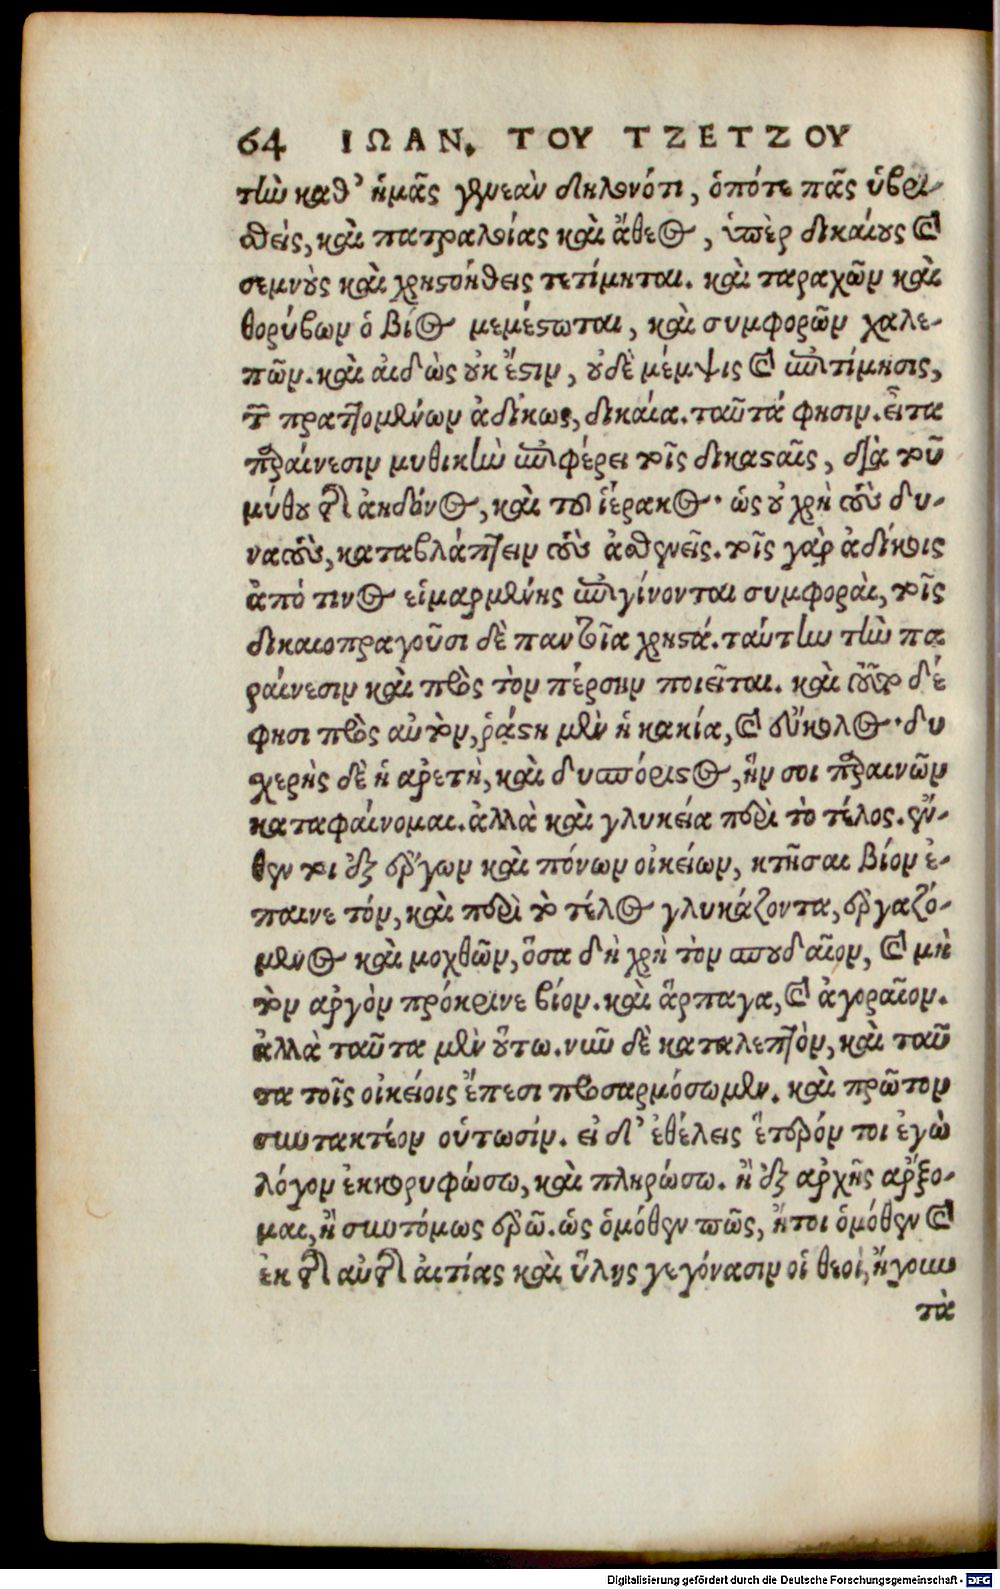 64 ΙΩΑΝ. ΤΟΥ ΤΖΕΤΖΟΥ
τὴν καθ' ἡμᾶς γενεὰν δηλονότι, ὁπότε πᾶς ὑβρι-
σθεὶς, καὶ πατραλοίας καὶ ἄθεος, ὑπὲρ δικαίους καὶ
σεμνοὺς καὶ χρηστοήθεις τετίμηται. καὶ ταραχῶν καὶ
θορύβων ὁ βίος μεμέστωται, καὶ συμφορῶν χαλε-
πῶν. καὶ αἰδὼς οὐκ ἔστιν, οὐδὲ μέμψις καὶ ἐπιτίμησις,
τῶν πραττομένων ἀδίκως, δικαία. ταῦτά φησιν. εἶτα
παραίνεσιν μυθικὴν ἐπιφέρει τοῖς δικασταῖς, διὰ τοῦ
μύθου τῆς ἀηδόνος, καὶ τοῦ ἱέρακος· ὡς οὐ χρὴ τοὺς δυ-
νατοὺς, καταβλάπτειν τοὺς ἀσθενεῖς. τοῖς γὰρ ἀδίκοις
ἀπό τινος εἱμαρμένης ἐπιγίνονται συμφοραὶ, τοῖς
δικαιοπραγοῦσι δὲ παντοῖα χρηστά. ταύτην τὴν πα
ραίνεσιν καὶ πρὸς τὸν πέρσην ποιεῖται. καὶ οὖν δέ
φησι πρὸς αὐτὸν, ῥάστη μὲν ἡ κακία, καὶ εὔκολος· δυ
σχερὴς δὲ ἡ ἀρετὴ, καὶ δυσπόριστος, ἥν σοι παραινῶν
καταφαίνομαι. ἀλλὰ καὶ γλυκεία περὶ τὸ τέλος. ἔν-
θεν τοι ἐξ ἔργων καὶ πόνων οἰκείων, κτῆσαι βίον ἐ-
παινετόν, καὶ περὶ τὸ τέλος γλυκάζοντα, ἐργαζό-
μενος καὶ μοχθῶν, ὅσα δὴ χρὴ τὸν σπουδαῖον, καὶ μὴ
τὸν ἀργὸν πρόκρινε βίον. καὶ ἅρπαγα, καὶ ἀγοραῖον.
ἀλλὰ ταῦτα μὲν οὕτω. νῦν δὲ καταλεπτὸν, καὶ ταῦ
τα τοῖς οἰκείοις ἔπεσι προσαρμόσωμεν. καὶ πρῶτον
συντακτέον οὑτωσίν. εἰ δ' ἐθέλεις ἕτερόν τοι ἐγὼ
λόγον ἐκκορυφώσω, καὶ πληρώσω. ἢ ἐξ ἀρχῆς ἄρξο-
μαι, ἢ συντόμως ἐρῶ. ὡς ὁμόθεν πῶς, ἤτοι ὁμόθεν καὶ
ἐκ τῆς αὐτῆς αἰτίας καὶ ὕλης γεγόνασιν οἱ θεοὶ, ἤγουν
τὰ
Digitalisierung gefördert durch die Deutsche Forschungsgemeinschaft - DFG